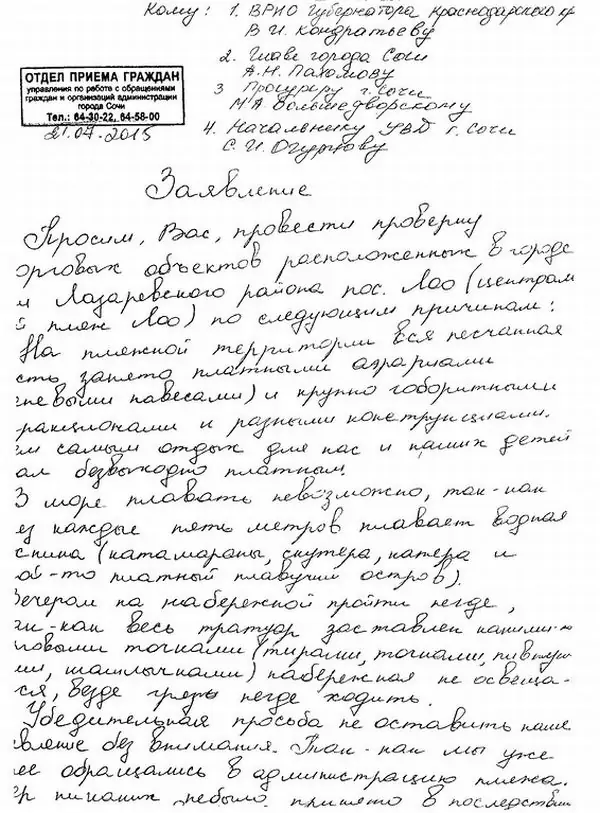 Кому: 1. ВРИО Губернатора Краснодарского кр
В.И. Кондратьеву
2. Главе города Сочи
А.Н. Пахомову
3 Прокурору г. Сочи
М.А. Большедворскому
4. Начальнику УВД г. Сочи
С. И. Огурцову
ОТДЕЛ ПРИЕМА ГРАЖДАН
управления по работе с обращениями
граждан и организаций администрации
города Сочи
Тел.: 64-30-22, 64-58-00
21.07.2015
Заявление
Просим, Вас, провести проверку
орговых объектов расположенных в городе
и Лазаревского района пос. Лоо (централь
й пляж Лоо) по следующим причинам:
На пляжной территории вся песчанная
сть занята платными аэрариями
невыми навесами) и крупно габоритными
ракционами и разными конструкциями.
м самым отдых для нас и наших детей
ал безвыходно платным.
В море плавать невозможно, так-как
ез каждые пять метров плавает водная
хника (катамараны, скутера, катера и
ой-то платный плавучий остров).
Вечером на набережной пройти негде,
ак-как весь тратуар заставлен какими-то
говыми точками (тирами, точками,
ми, шашлычками) набережная не освеща-
ся, везде негде ходить.
Убедительная просьба не оставить наше
вление без внимания. Так-как мы уже
ее обращались в администрацию пляжа.
ер никаких небыло принято в последствии